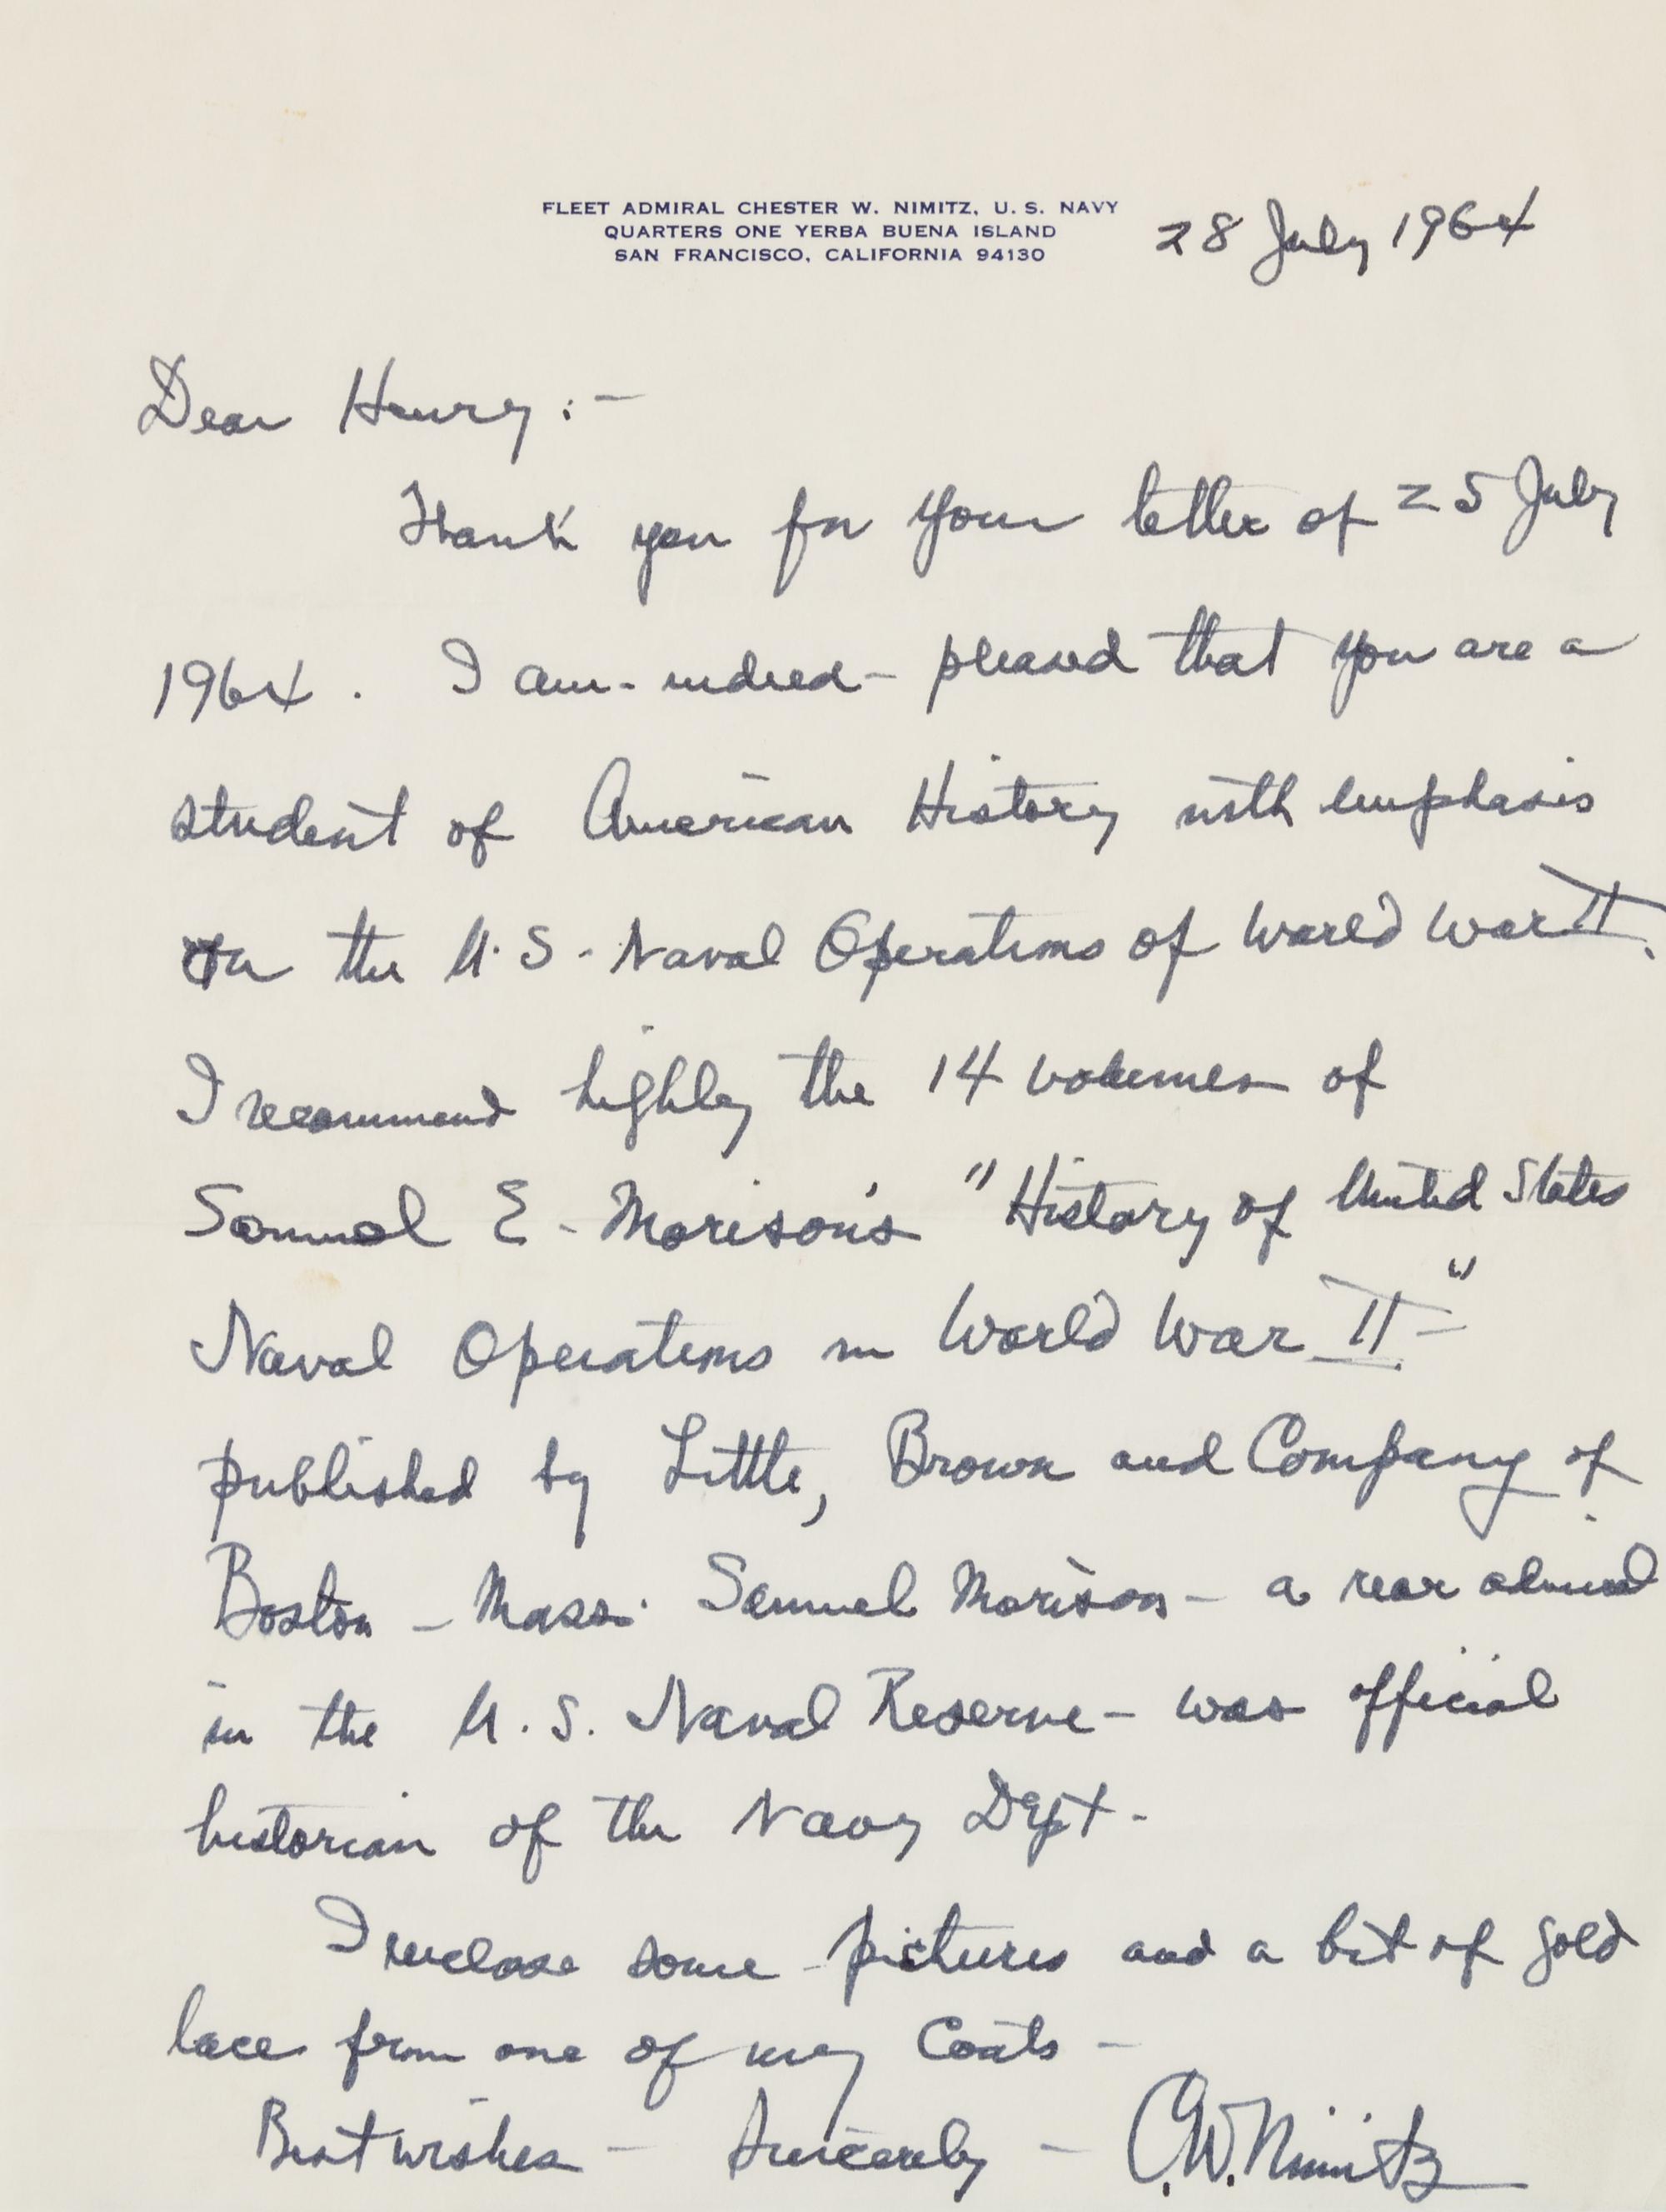 FLEET ADMIRAL CHESTER W. NIMITZ, U. S. NAVY
QUARTERS ONE YERBA BUENA ISLAND
SAN FRANCISCO, CALIFORNIA 94130
28 July 1964
Dear Henry :-
Thank you for your letter of 25 July
1964. I am - indeed - pleased that you are a
student of American History with emphasis
on the U.S. Naval Operations of World War II.
I recommend highly the 14 volumes of
Samuel E. Morison's "History of United States
Naval Operations in World War II -"
published by Little, Brown and Company of
Boston - Mass. Samuel Morison - a rear admiral
in the U.S. Naval Reserve - was official
historian of the Navy Dept.
I enclose some pictures and a bit of gold
lace from one of my Coats -
Best wishes - Sincerely - C.W. Nimitz